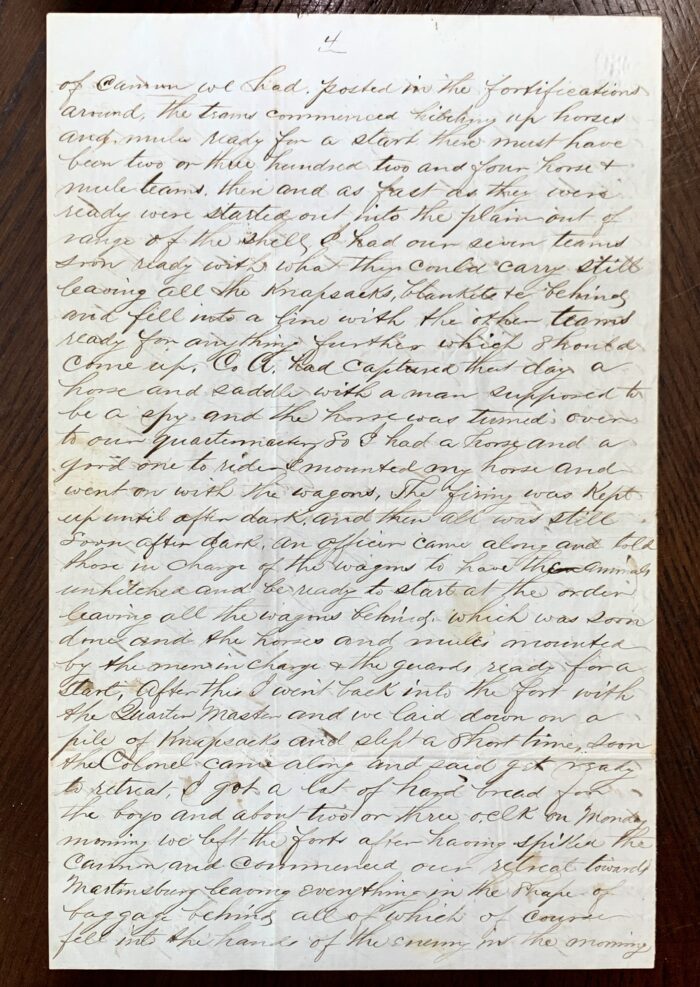 4
of cannon we had posted in the fortifications
around, the trains commenced hitching up horses
and mules ready for a start there must have
been two or three hundred two and four horse &
mule teams, there and as fast as they were
ready were started out into the plain out of
range of the shells, I had our seven teams
soon ready with what they could carry still
leaving all the Knapsacks, blankets &c behind
and fell into a line with the other teams
ready for anything further which should
come up, Co A. had captured that day a
horse and saddle with a man supposed to
be a spy and the horse was turned over
to our quartermaster, So I had a horse and a
good one to ride I mounted my horse and
went on with the wagons, The firing was Kept
up until after dark, and then all was still
Soon after dark an officer came along and told
those in charge of the wagons to have the animals
unhitched and be ready to start at the order
leaving all the wagons behind, which was soon
done and the horses and mules mounted
by the men in charge & the guards ready for a
start, After this I went back into the fort with
the Quarter Master and we laid down on a
pile of Knapsacks and slept a short time, soon
the Colonel came along and said get ready
to retreat, I got a lot of hard bread for
the boys and about two or three oclk on Monday
morning we left the forts after having spiked the
cannon and commenced our retreat towards
Martinsburg leaving everything in the shape of
baggage behind all of which of course
fell into the hands of the enemy in the morning